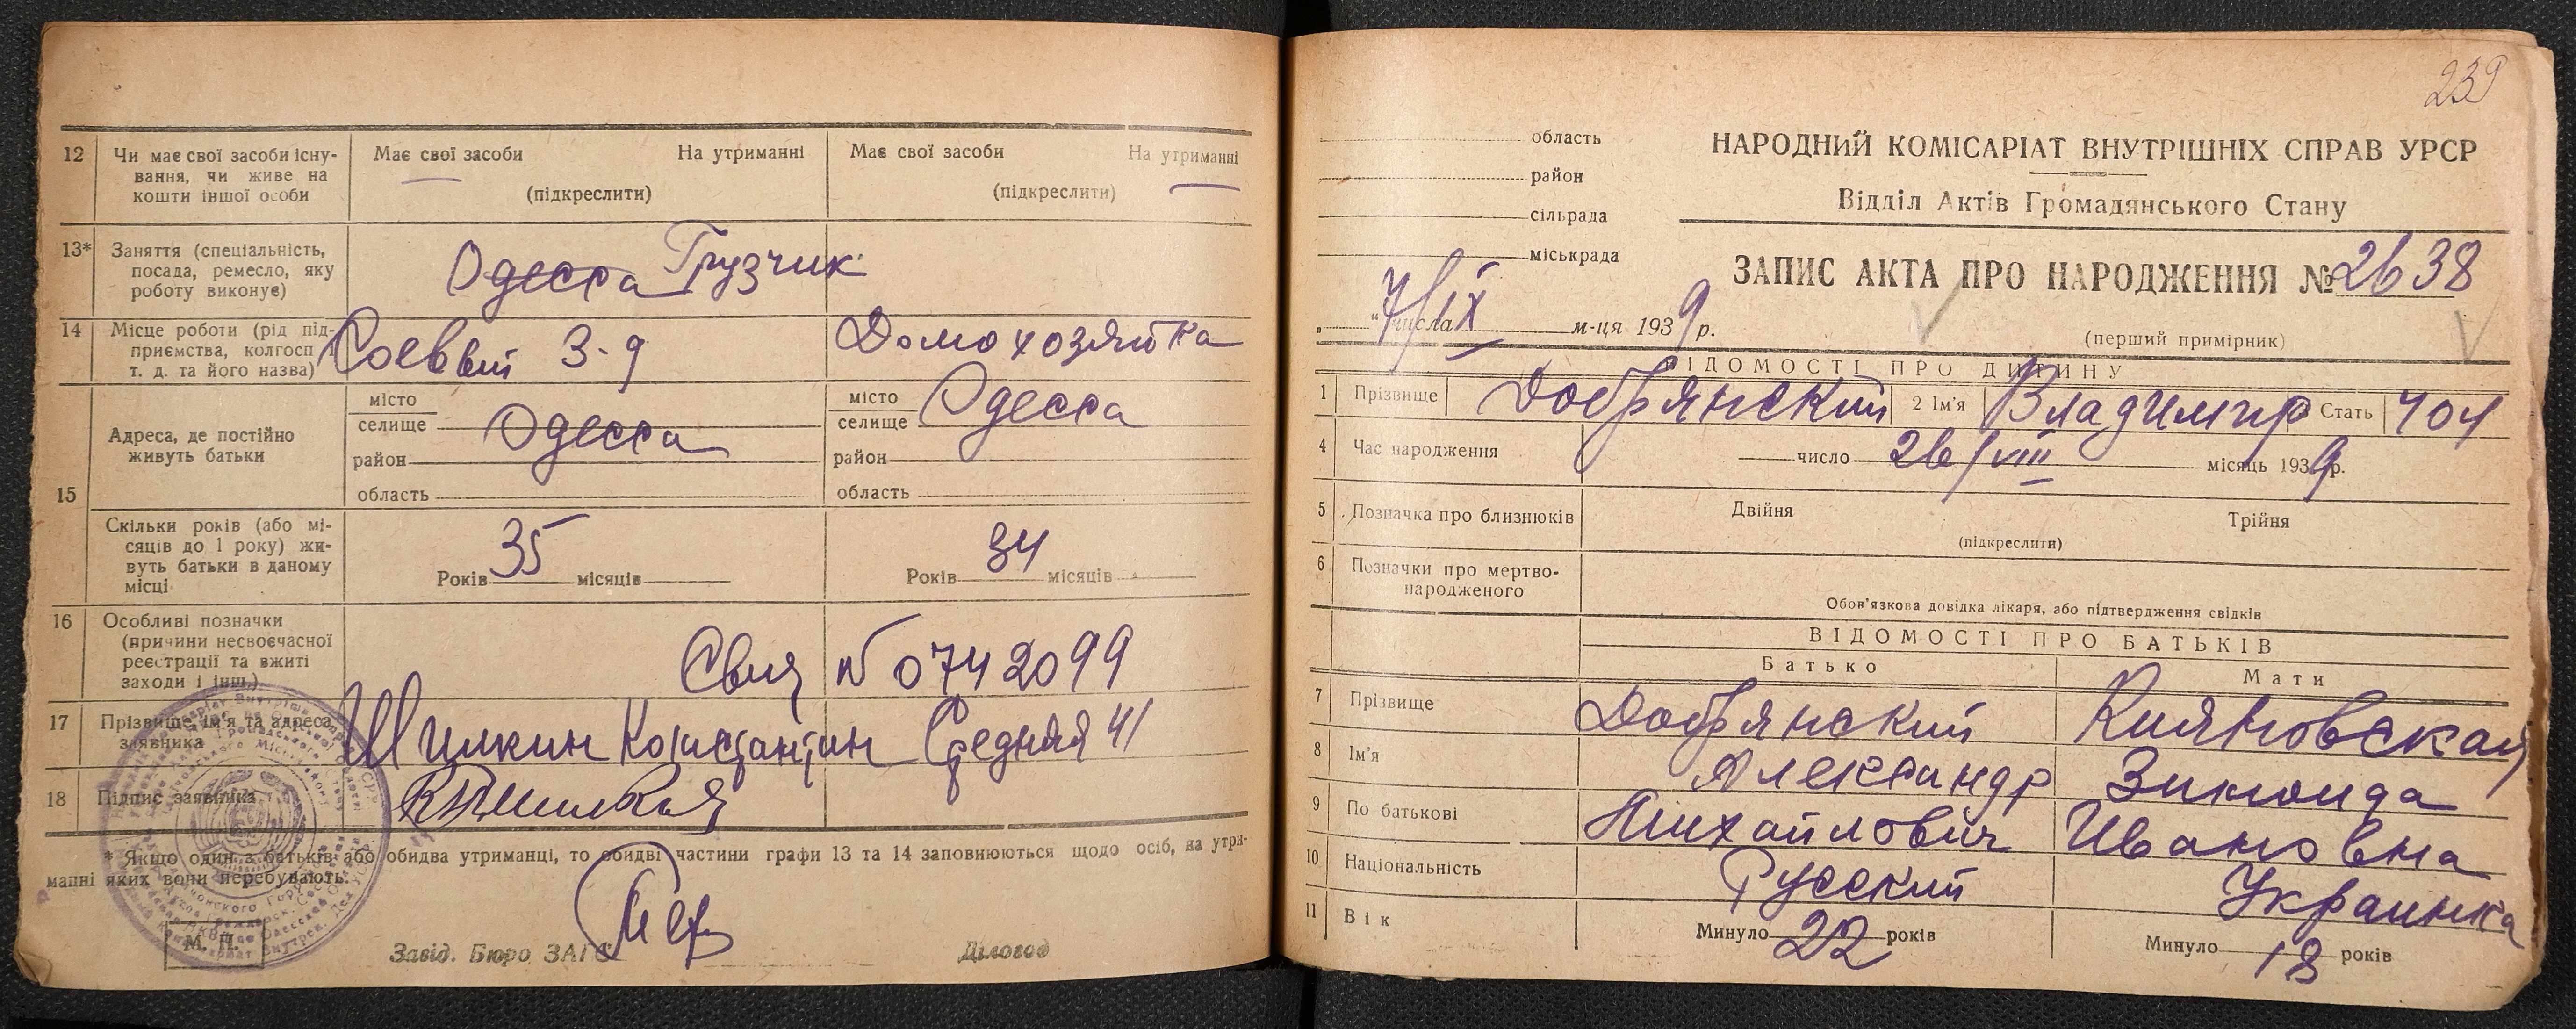 12 Чи має свої засоби існу-
вання, чи живе на
кошти іншої особи
Має свої засоби На утриманні
(підкреслити)
Має свої засоби На утриманні
(підкреслити)
13* Заняття (спеціальність,
посада, ремесло, яку
роботу виконує)
Одесса Грузчик
14 Місце роботи (рід під-
приємства, колгосп і
т. д. та його назва)
Соевый З-д
Домохозяйка
15 Адреса, де постійно
живуть батьки
місто
селище Одесса
район
область
місто
селище Одесса
район
область
Скільки років (або мі-
сяців до 1 року) жи-
вуть батьки в даному
місці
Років 35 місяців
Років 34 місяців
16 Особливі позначки
(причини несвоєчасної
реєстрації та вжиті
заходи і інш.)
№ 0742099
17 Прізвище, ім'я та адреса
заявника
Шилкин Константин Средняя 41
18 Підпис заявника
* Якщо один з батьків або обидва утриманці, то обидві частини графи 13 та 14 заповнюються щодо осіб, на утри-
манні яких вони перебувають.
М. П.
Завід. Бюро ЗАГС
Діловод
239
область
район
сільрада
міськрада
НАРОДНИЙ КОМІСАРІАТ ВНУТРІШНІХ СПРАВ УРСР
Відділ Актів Громадянського Стану
ЗАПИС АКТА ПРО НАРОДЖЕННЯ № 2638
„ “ числа 7/IX м-ця 1939 р.
(перший примірник)
ВІДОМОСТІ ПРО ДИТИНУ
1 Прізвище Добрянский 2 Ім'я Владимир Стать чол
4 Час народження число 26/VIII місяць 1939 р.
5 Позначка про близнюків Двійня Трійня
(підкреслити)
6 Позначки про мертво-
народженого
Обов'язкова довідка лікаря, або підтвердження свідків
ВІДОМОСТІ ПРО БАТЬКІВ
Батько Мати
7 Прізвище Добрянский Кияновская
8 Ім'я Александр Зинаида
9 По батькові Михайлович Ивановна
10 Національність Русский Украинка
11 Вік Минуло 22 років Минуло 18 років